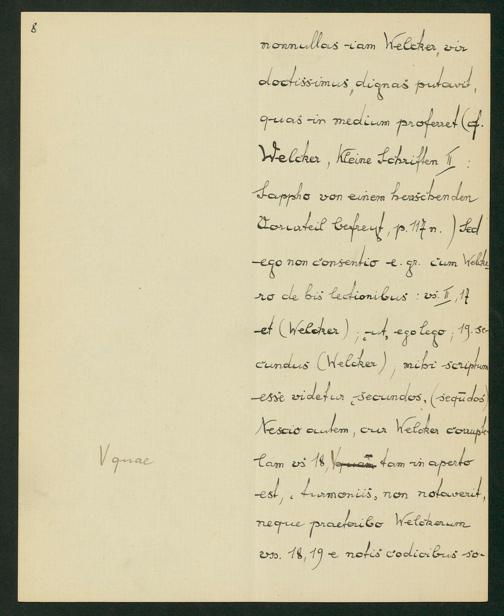 8
nonnullas iam Welcker, vir
doctissimus, dignas putavit,
quas in medium proferret (cf.
Welcker, Kleine Schriften II :
Sappho von einem herrschenden
Vorurteil befreyt, p. 117 n.) Sed
ego non consentio e. gr. cum Welcke
ro de his lectionibus : vs. II, 17
et (Welcker) ; ut, ego lego ; 19. se-
cundus (Welcker), mihi scriptum
esse videtur secundos, (segūdos)
Nescio autem, cur Welcker corrupte-
lam vs 18, V quam tam in aperto
V quae
est, turmoniis, non notaverit,
neque praeteribo Welckerum
vss. 18, 19 e notis codicibus so-